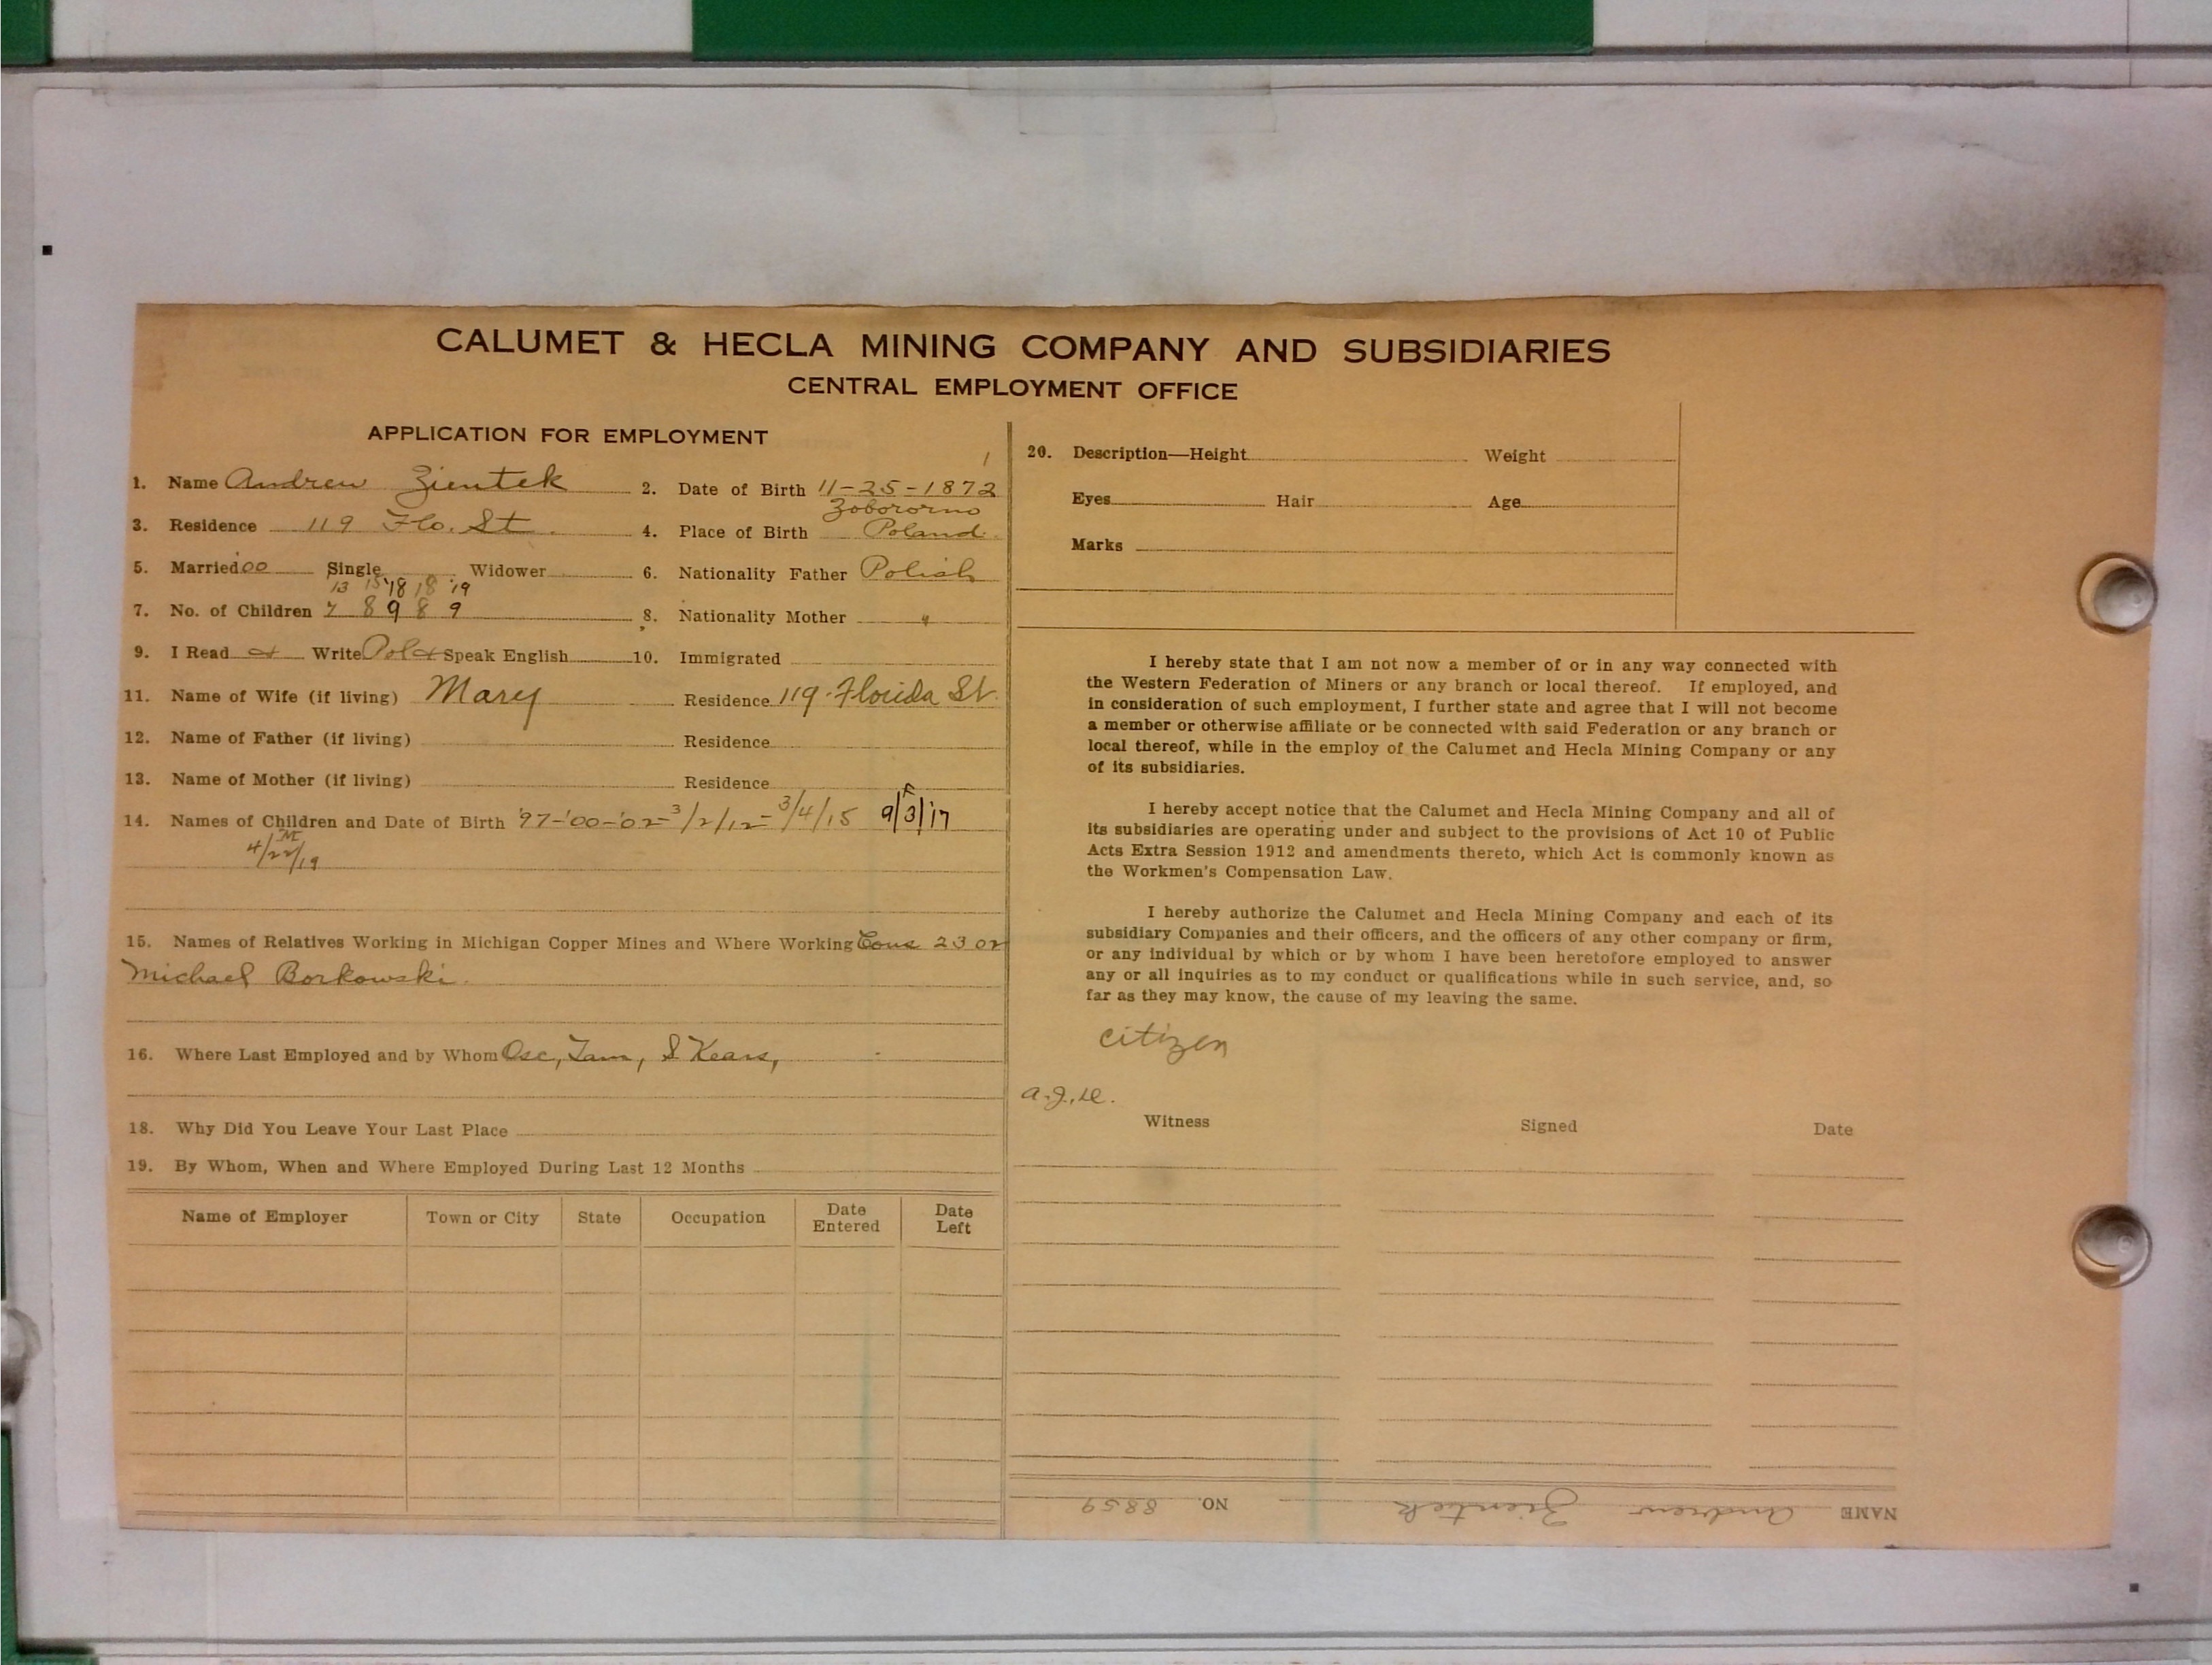 CALUMET & HECLA MINING COMPANY AND SUBSIDIARIES
CENTRAL EMPLOYMENT OFFICE
APPLICATION FOR EMPLOYMENT
1. Name Andrew Zientek 2. Date of Birth 11-25-1872
3. Residence 119 Flo. St. 4. Place of Birth Zobororno Poland.
5. Married 00 Single Widower 6. Nationality Father Polish
13 15 '18 18 '19
7. No. of Children 7 8 9 8 9 8. Nationality Mother "
9. I Read & Write Pol & Speak English 10. Immigrated
11. Name of Wife (if living) Mary Residence 119 Florida St.
12. Name of Father (if living) Residence
13. Name of Mother (if living) Residence
14. Names of Children and Date of Birth '97-'00-'02-3/2/12-3/4/15 9/3/17 F
4/22/19 M
15. Names of Relatives Working in Michigan Copper Mines and Where Working Cous 23 or
Michael Borkowski.
16. Where Last Employed and by Whom Osc, Tam, S Kears,
18. Why Did You Leave Your Last Place
19. By Whom, When and Where Employed During Last 12 Months
Name of Employer Town or City State Occupation Date Entered Date Left
1
20. Description—Height Weight
Eyes Hair Age
Marks
I hereby state that I am not now a member of or in any way connected with
the Western Federation of Miners or any branch or local thereof. If employed, and
in consideration of such employment, I further state and agree that I will not become
a member or otherwise affiliate or be connected with said Federation or any branch or
local thereof, while in the employ of the Calumet and Hecla Mining Company or any
of its subsidiaries.
I hereby accept notice that the Calumet and Hecla Mining Company and all of
its subsidiaries are operating under and subject to the provisions of Act 10 of Public
Acts Extra Session 1912 and amendments thereto, which Act is commonly known as
the Workmen's Compensation Law.
I hereby authorize the Calumet and Hecla Mining Company and each of its
subsidiary Companies and their officers, and the officers of any other company or firm,
or any individual by which or by whom I have been heretofore employed to answer
any or all inquiries as to my conduct or qualifications while in such service, and, so
far as they may know, the cause of my leaving the same.
citizen
Witness Signed Date
NAME Andrew Zientek NO. 8859